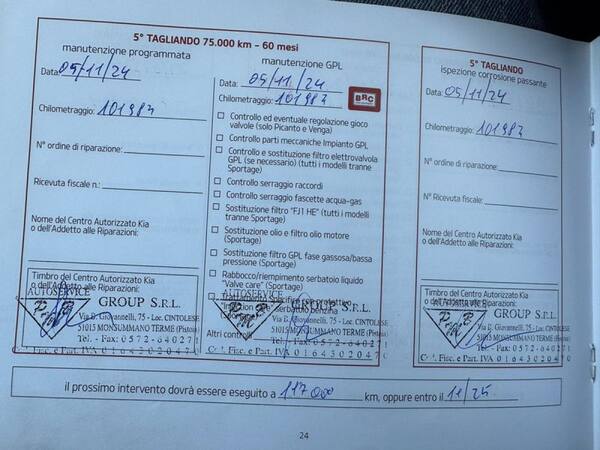 5° TAGLIANDO 75.000 km – 60 mesi
manutenzione programmata
Data: 05/11/24
Chilometraggio: 101983
N° ordine di riparazione:
Ricevuta fiscale n.:
Nome del Centro Autorizzato Kia
o dell'Addetto alle Riparazioni:
Timbro del Centro Autorizzato Kia
o dell'Addetto alle Riparazioni:
AUTOSERVICE
GROUP S.R.L.
Via B. Giovannelli, 75 - Loc. CINTOLESE
51015 MONSUMMANO TERME (Pistoia)
Tel. - Fax: 0572-640271
Cod. Fisc. e Part. IVA 01643020470
manutenzione GPL
Data: 05/11/24
Chilometraggio: 101983
BRC
Controllo ed eventuale regolazione gioco
valvole (solo Picanto e Venga)
Controllo parti meccaniche Impianto GPL
Controllo e sostituzione filtro elettrovalvola
GPL (se necessario) (tutti i modelli tranne
Sportage)
Controllo serraggio raccordi
Controllo serraggio fascette acqua-gas
Sostituzione filtro "FJ1 HE" (tutti i modelli
tranne Sportage)
Sostituzione olio e filtro olio motore
(Sportage)
Sostituzione filtro GPL fase gassosa/bassa
pressione (Sportage)
Rabbocco/riempimento serbatoio liquido
"Valve care" (Sportage)
Trattamento specifico
serbatoio benzina
Altri controlli
AUTOSERVICE
GROUP S.R.L.
Via B. Giovannelli, 75 - Loc. CINTOLESE
51015 MONSUMMANO TERME (Pistoia)
Tel. - Fax: 0572-640271
Cod. Fisc. e Part. IVA 01643020470
5° TAGLIANDO
ispezione corrosione passante
Data: 05/11/24
Chilometraggio: 101983
N° ordine di riparazione:
N° Ricevuta fiscale:
Nome del Centro Autorizzato Kia
o dell'Addetto alle Riparazioni:
Timbro del Centro Autorizzato Kia
o dell'Addetto alle Riparazioni:
AUTOSERVICE
GROUP S.R.L.
Via B. Giovannelli, 75 - Loc. CINTOLESE
51015 MONSUMMANO TERME (Pistoia)
Tel. - Fax: 0572-640271
Cod. Fisc. e Part. IVA 01643020470
il prossimo intervento dovrà essere eseguito a 117000 km, oppure entro il 11/25
24